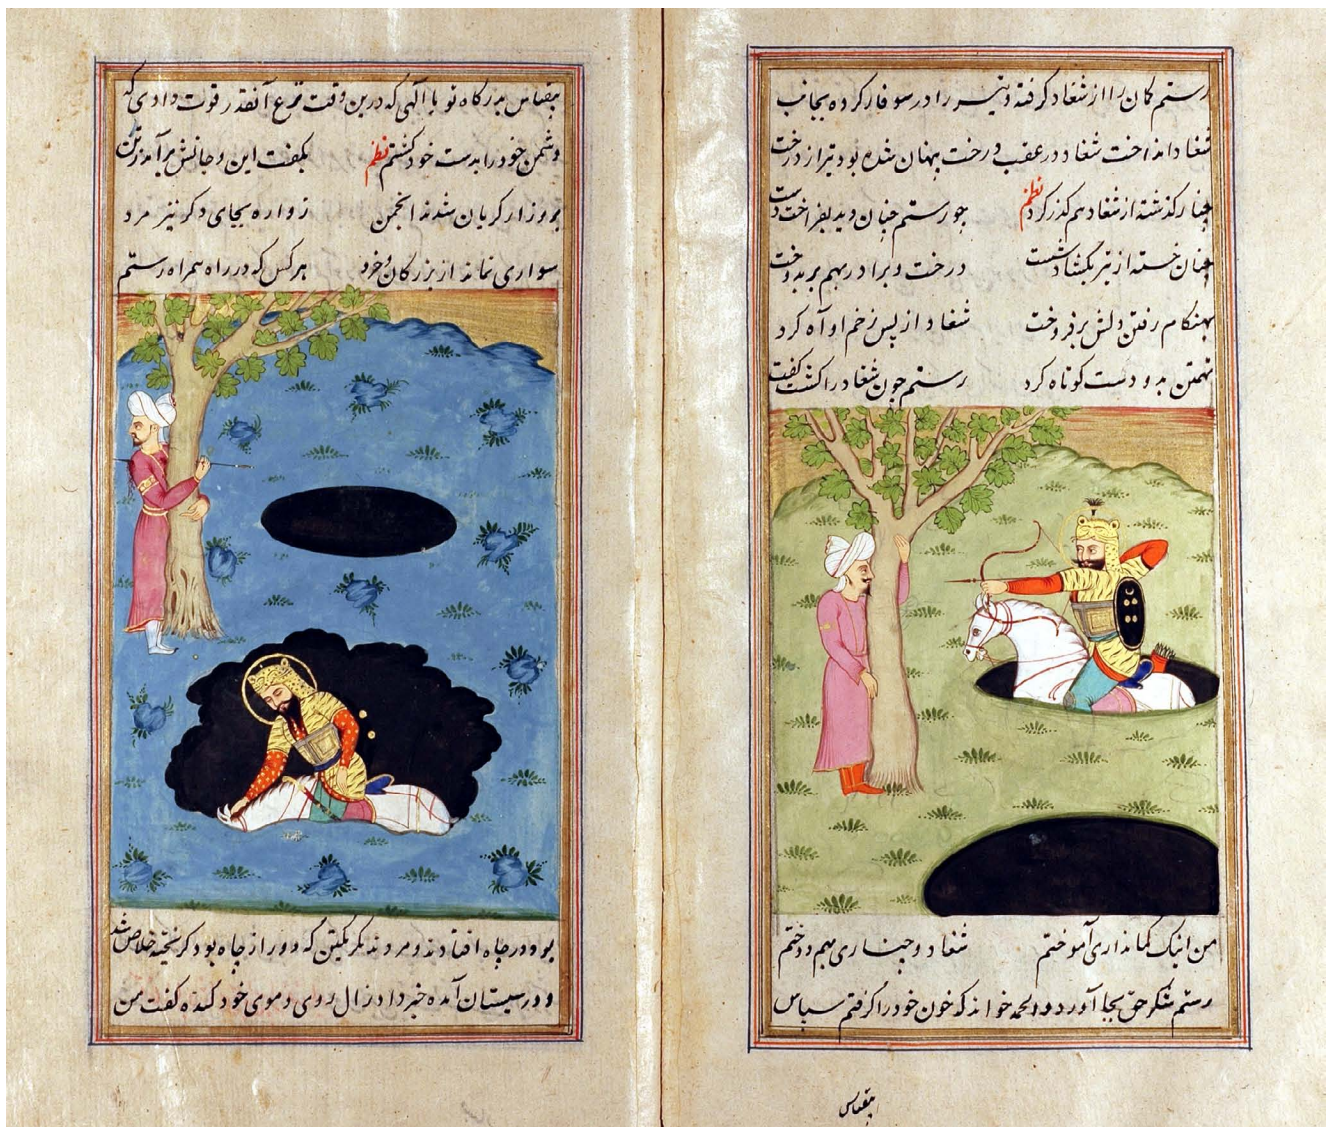 رستم کمان را از شغاد گرفته و تیر را در سوفار کرده بجانب
شغاد انداخت شغاد در عقب درخت پنهان شده بود تیر از درخت
چنار گذشته از شغاد هم گذر کرد نظم چو رستم چنان دید بفراخت دست
چنان خسته از تیر بگشاد شست درخت و برادر بهم بر بدوخت
بهنگام رفتن دلش برفروخت شغاد از پس زخم او آه کرد
تهمتن بدو دست کوتاه کرد رستم چون شغاد را کشت گفت
من اینک کمانداری آموختم شغاد و چناری بهم دوختم
رستم شکر حق بجا آورد و الحمد خواند که خون خود را گرفتم سپاس
بیقیاس
بیقیاس بدرگاه تو یا الهی که درین وقت نزع آنقدر قوت دادی که
دشمن خود را بدست خود کشتم نظم بگفت این و جانش برآمد ز تن
برو زار گریان شدند انجمن زواره بجای دگر نیز مرد
سواری نماند از بزرگان و خرد هر کس که در راه همراه رستم
بود در چاه افتادند و مردند مگر یکتن که دور از چاه بود گریخته خلاص شد
و در سیستان آمده خبر داد زال روی و موی خود کنده گفت من